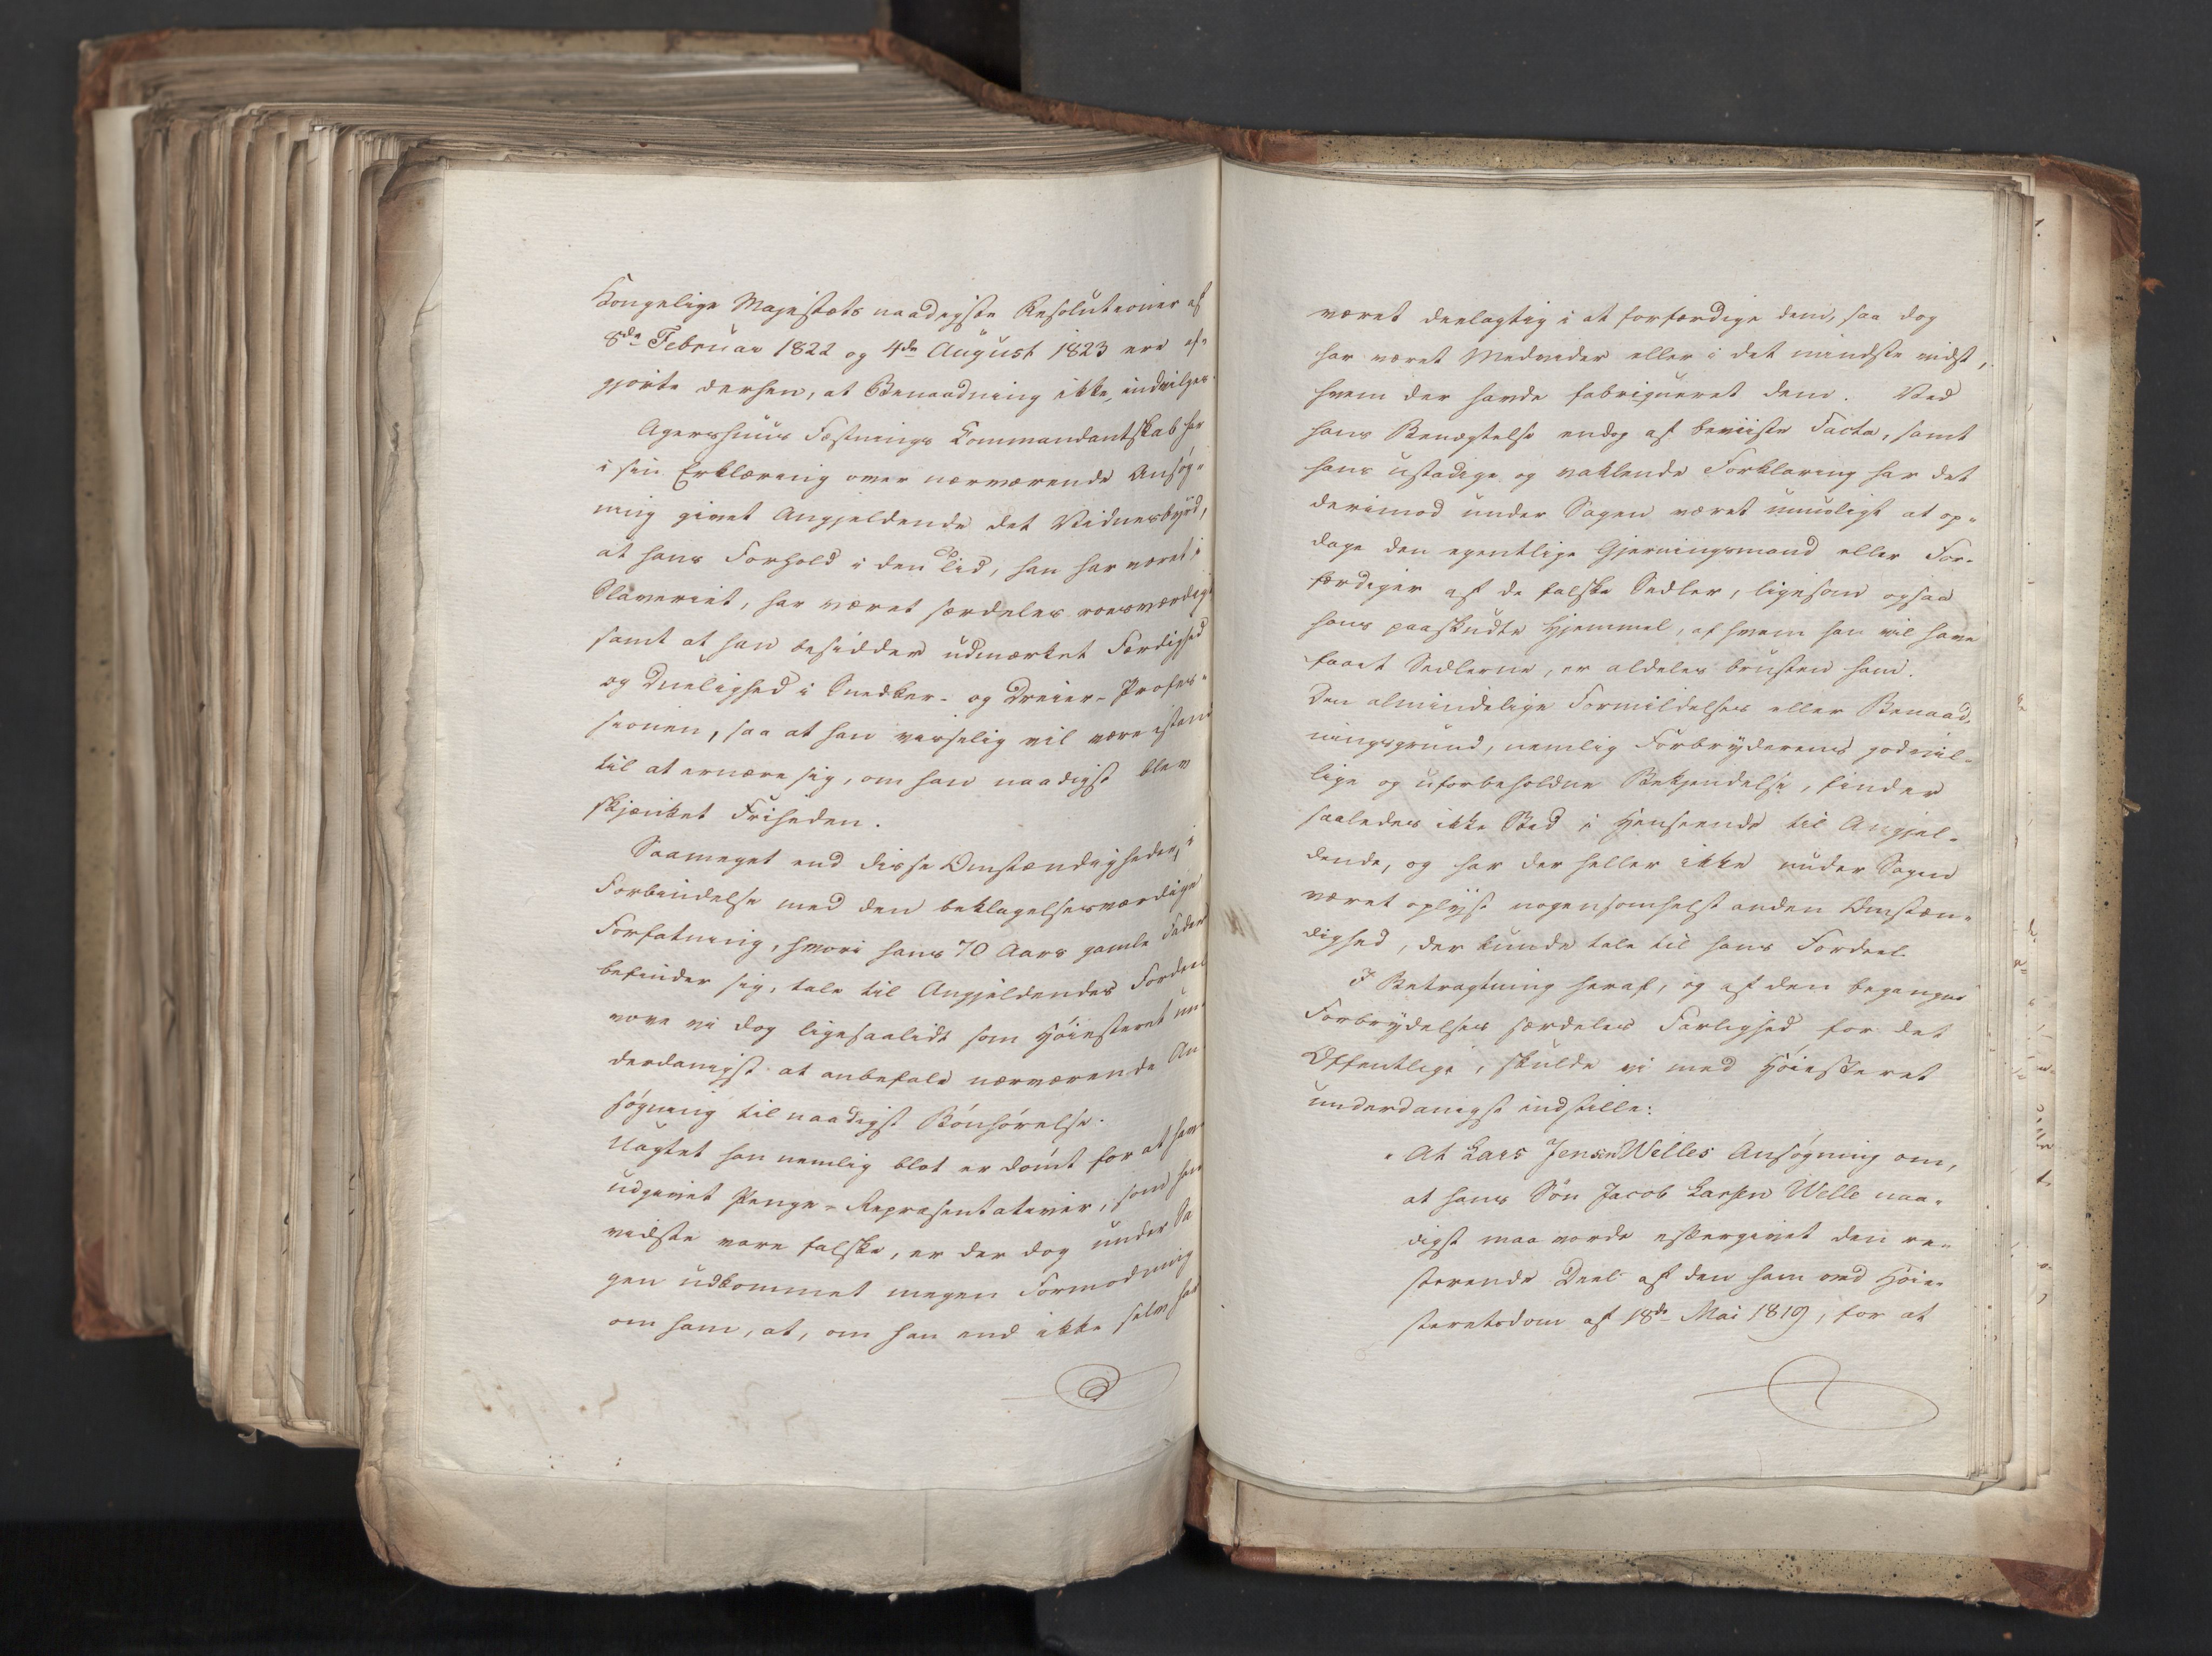 Kongelige Majestæts naadigste Resolutioner af
8de Februar 1822 og 4de August 1823 ere af-
gjorte derhen, at Benaadning ikke indvilges.
Agershuus Fæstnings Kommandantskab har
i sin Erklæring over nærværende Ansøg-
ning givet Angjeldende det Vidnesbyrd,
at hans Forhold i den Tid, han har været i
Slaveriet, har været særdeles roesværdigt
samt at han besidder udmærket Færdighed
og Duelighed i Snedker- og Dreier-Profes-
sionen, saa at han visselig vil være istand
til at ernære sig, om han naadigst blev
skjænket Friheden.
Saameget end disse Omstændigheder, i
Forbindelse med den beklagelsesværdige
Forfatning, hvori hans 70 Aars gamle Fader
befinder sig, tale til Angjeldendes Fordeel
vove vi dog ligesaalidt som Høiesteret un-
derdanigst at anbefale nærværende An-
søgning til naadigst Bønhørelse.
Uagtet han nemlig blot er dømt for at have
udgivet Penge-Repræsentativer, som han
vidste vare falske, er der dog under Sa-
gen udkommet megen Formodning
om ham, at, om han end ikke selv har
været deelagtig i at forfærdige dem, saa dog
har været Medvider eller i det mindste vidst,
hvem der havde fabriqueret dem. Ved
hans Benægtelse endog af beviiste Facta, samt
hans ustadige og vaklende Forklaring har det
derimod under Sagen været umuligt at op-
dage den egentlige Gjerningsmand eller For-
færdiger af de falske Sedler, ligesom ogsaa
hans paaskudte Hjemmel, af hvem han vil have
faaet Sedlerne, er aldeles brusten ham.
Den almindelige Formildelses eller Benaad-
ningsgrund, nemlig Forbryderens godvil-
lige og uforbeholdne Bekjendelse, finder
saaledes ikke Sted i Henseende til Angjel-
dende, og har der heller ikke under Sagen
været oplyst nogensomhelst anden Omstæn-
dighed, der kunde tale til hans Fordeel.
I Betragtning heraf, og af den begangne
Forbrydelses særdeles Farlighed for det
Offentlige, skulde vi med Høiesteret
underdanigst indstille:
"At Lars Jensen Welles Ansøgning om,
at hans Søn Jacob Larsen Welle naa-
digst maa vorde eftergivet den re-
sterende Deel af den ham ved Høie-
steretsdom af 18de Mai 1819, for at